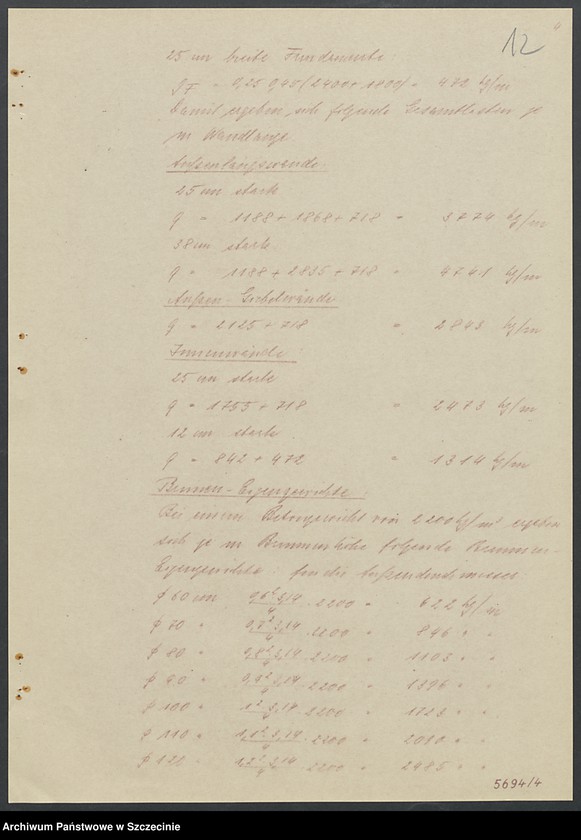 12
25 cm breite Fundamente:
g_F = 0,25 · 0,45 (2400 + 1800) = 472 kg/m
Damit ergeben sich folgende Gesamtlasten je
m Wandlänge
Außenlängswände.
25 cm stark
q = 1188 + 1868 + 718 = 3774 kg/m
38 cm stark.
q = 1188 + 2835 + 718 = 4741 kg/m
Außen-Giebelwände
q = 2125 + 718 = 2843 kg/m
Innenwände:
25 cm stark
q = 1755 + 718 = 2473 kg/m
12 cm stark.
q = 842 + 472 = 1314 kg/m
Brunnen-Eigengewichte:
Bei einem Betongewicht von 2200 kg/m³ ergeben
sich je m Brunnenhöhe folgende Brunnen-
Eigengewichte: Außendurchmesser
ø 60 cm 0,6² · 3,14/4 · 2200 = 622 kg/m
ø 70 " 0,7² · 3,14/4 · 2200 = 846 " "
ø 80 " 0,8² · 3,14/4 · 2200 = 1103 " "
ø 90 " 0,9² · 3,14/4 · 2200 = 1396 " "
ø 100 " 1² · 3,14/4 · 2200 = 1723 " "
ø 110 " 1,1² · 3,14/4 · 2200 = 2080 " "
ø 120 " 1,2² · 3,14/4 · 2200 = 2485 " "
5694/4
Archiwum Państwowe w Szczecinie